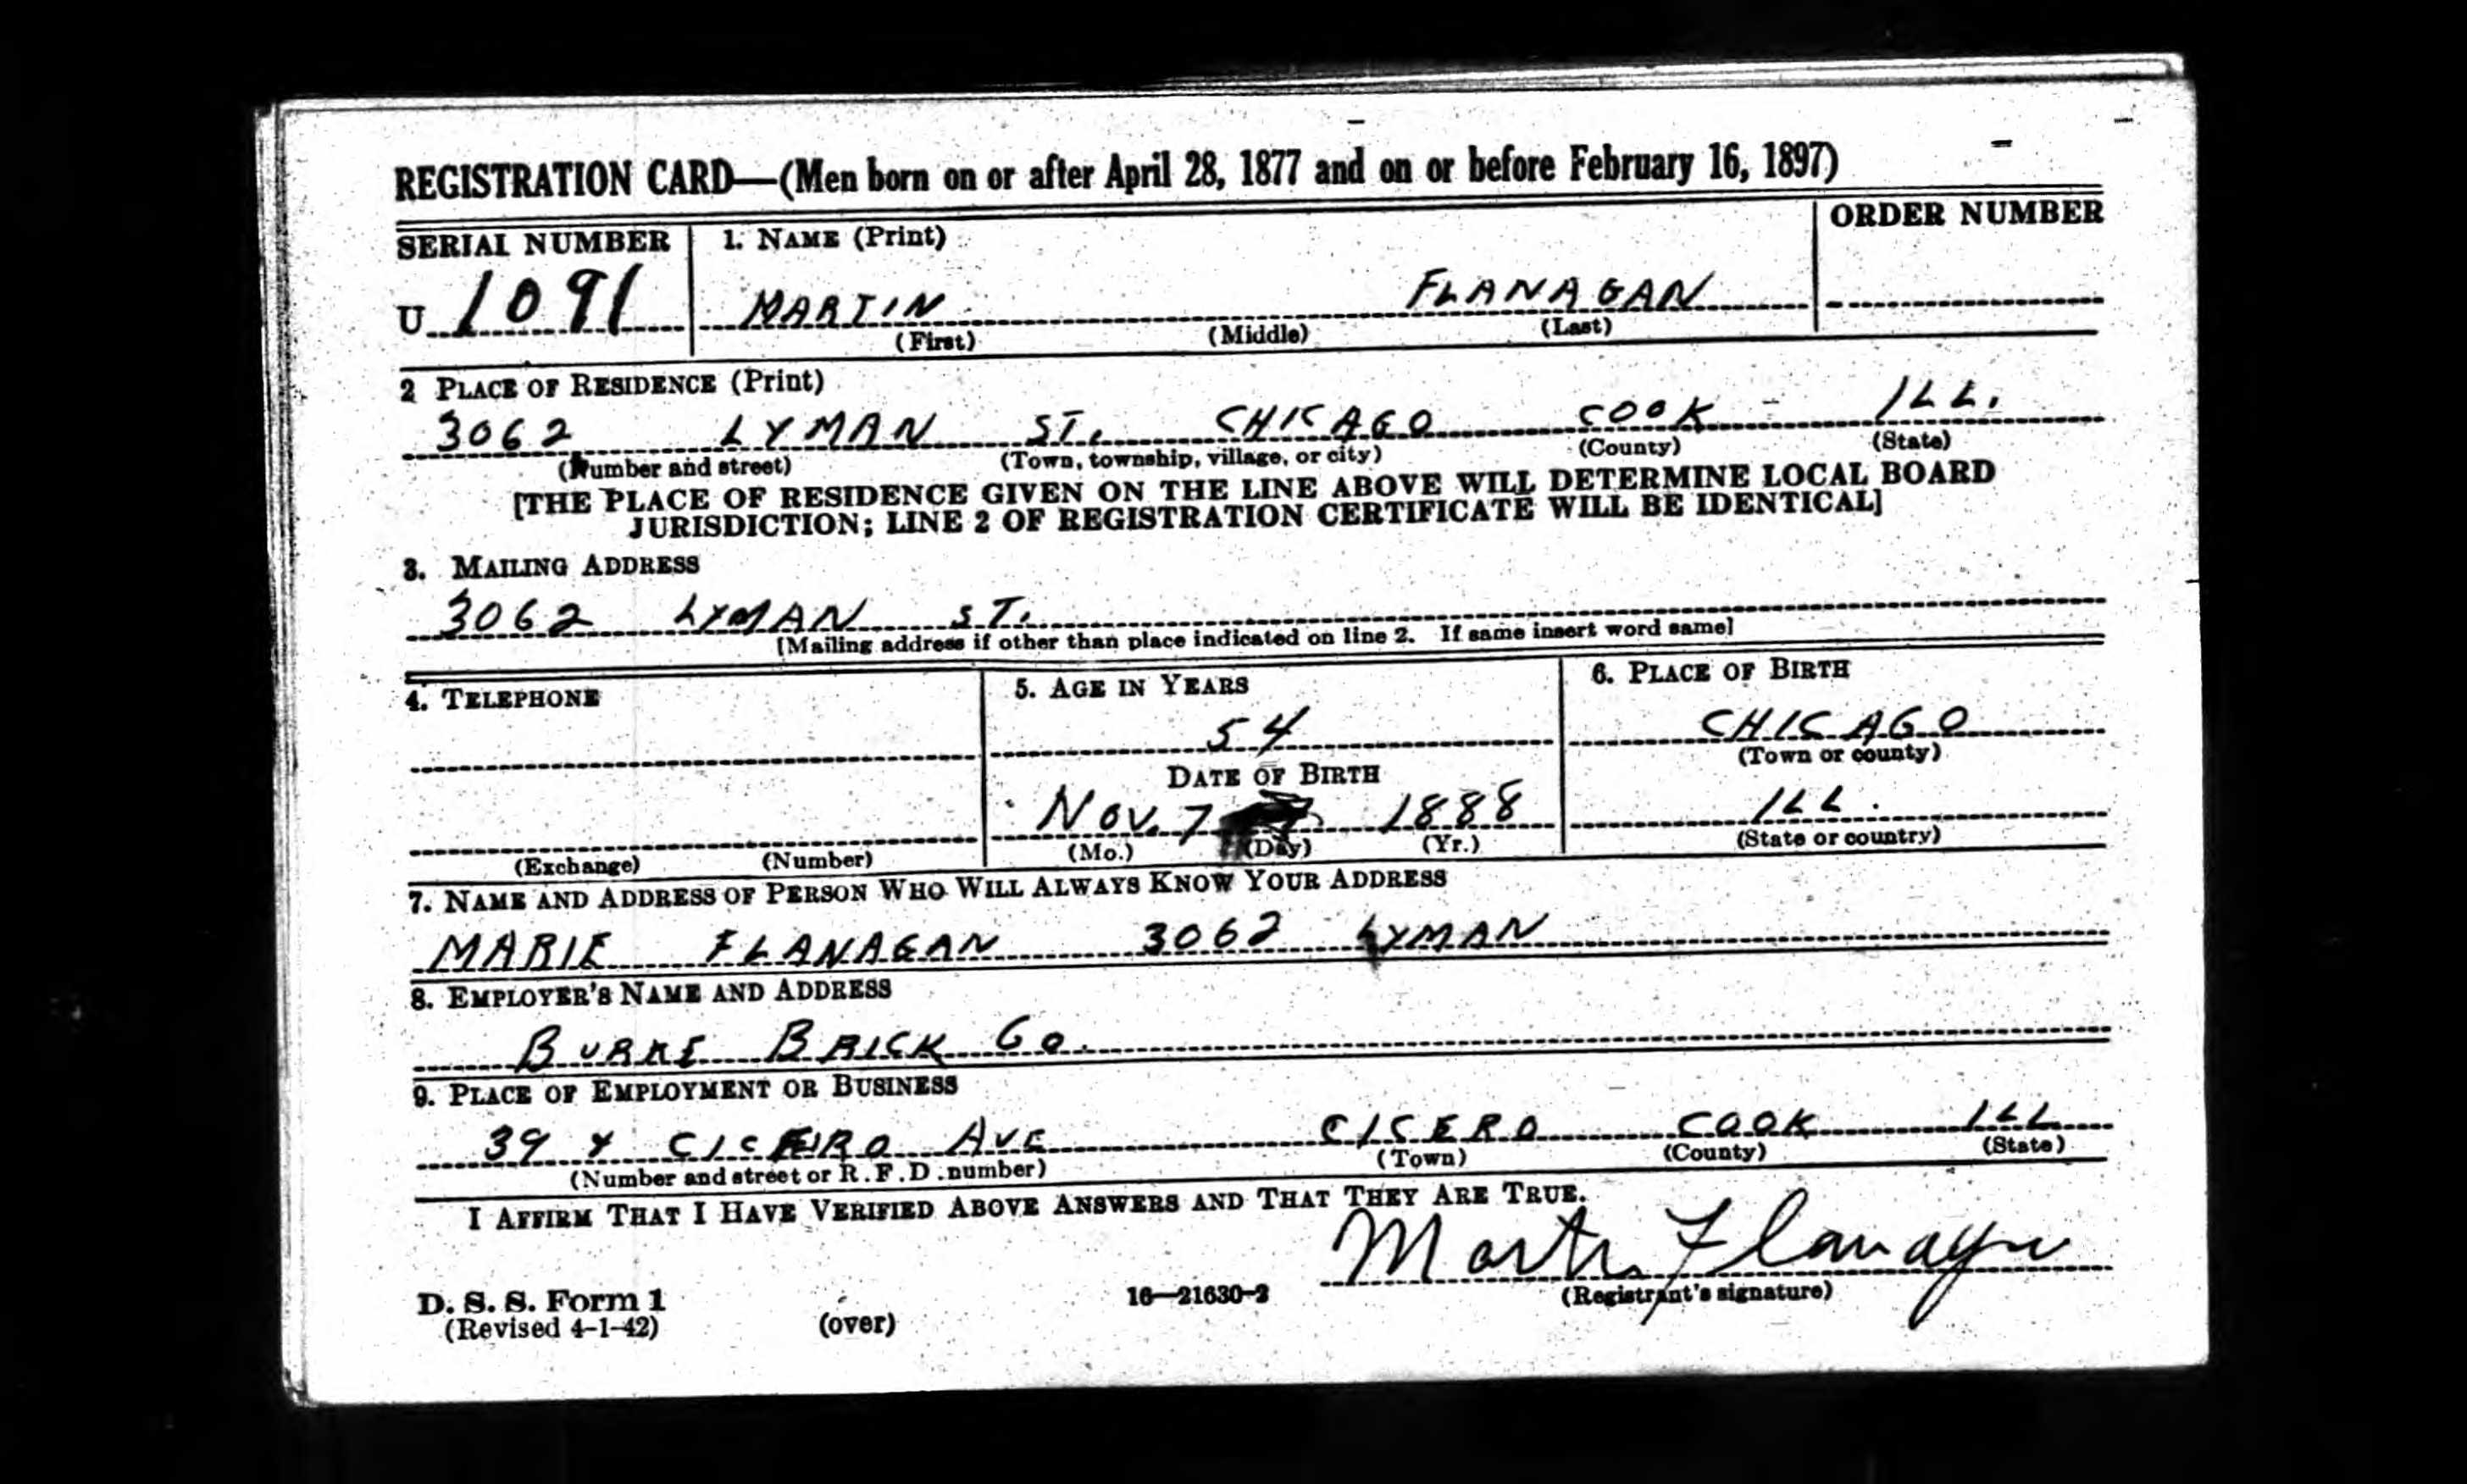 REGISTRATION CARD—(Men born on or after April 28, 1877 and on or before February 16, 1897)
SERIAL NUMBER 1. NAME (Print) ORDER NUMBER
U 1091 MARTIN FLANAGAN
(First) (Middle) (Last)
2 PLACE OF RESIDENCE (Print)
3062 LYMAN ST. CHICAGO COOK ILL.
(Number and street) (Town, township, village, or city) (County) (State)
[THE PLACE OF RESIDENCE GIVEN ON THE LINE ABOVE WILL DETERMINE LOCAL BOARD
JURISDICTION; LINE 2 OF REGISTRATION CERTIFICATE WILL BE IDENTICAL]
3. MAILING ADDRESS
3062 LYMAN ST.
[Mailing address if other than place indicated on line 2. If same insert word same]
4. TELEPHONE 5. AGE IN YEARS 6. PLACE OF BIRTH
54 CHICAGO
(Town or county)
DATE OF BIRTH
Nov. 7 1888 ILL.
(Exchange) (Number) (Mo.) (Day) (Yr.) (State or country)
7. NAME AND ADDRESS OF PERSON WHO WILL ALWAYS KNOW YOUR ADDRESS
MARIE FLANAGAN 3062 LYMAN
8. EMPLOYER'S NAME AND ADDRESS
BURKE BRICK Co.
9. PLACE OF EMPLOYMENT OR BUSINESS
39 + CICERO AVE CICERO COOK ILL
(Number and street or R. F. D. number) (Town) (County) (State)
I AFFIRM THAT I HAVE VERIFIED ABOVE ANSWERS AND THAT THEY ARE TRUE.
Martin Flanagan
D. S. S. Form 1 16—21630-2 (Registrant's signature)
(Revised 4-1-42) (over)